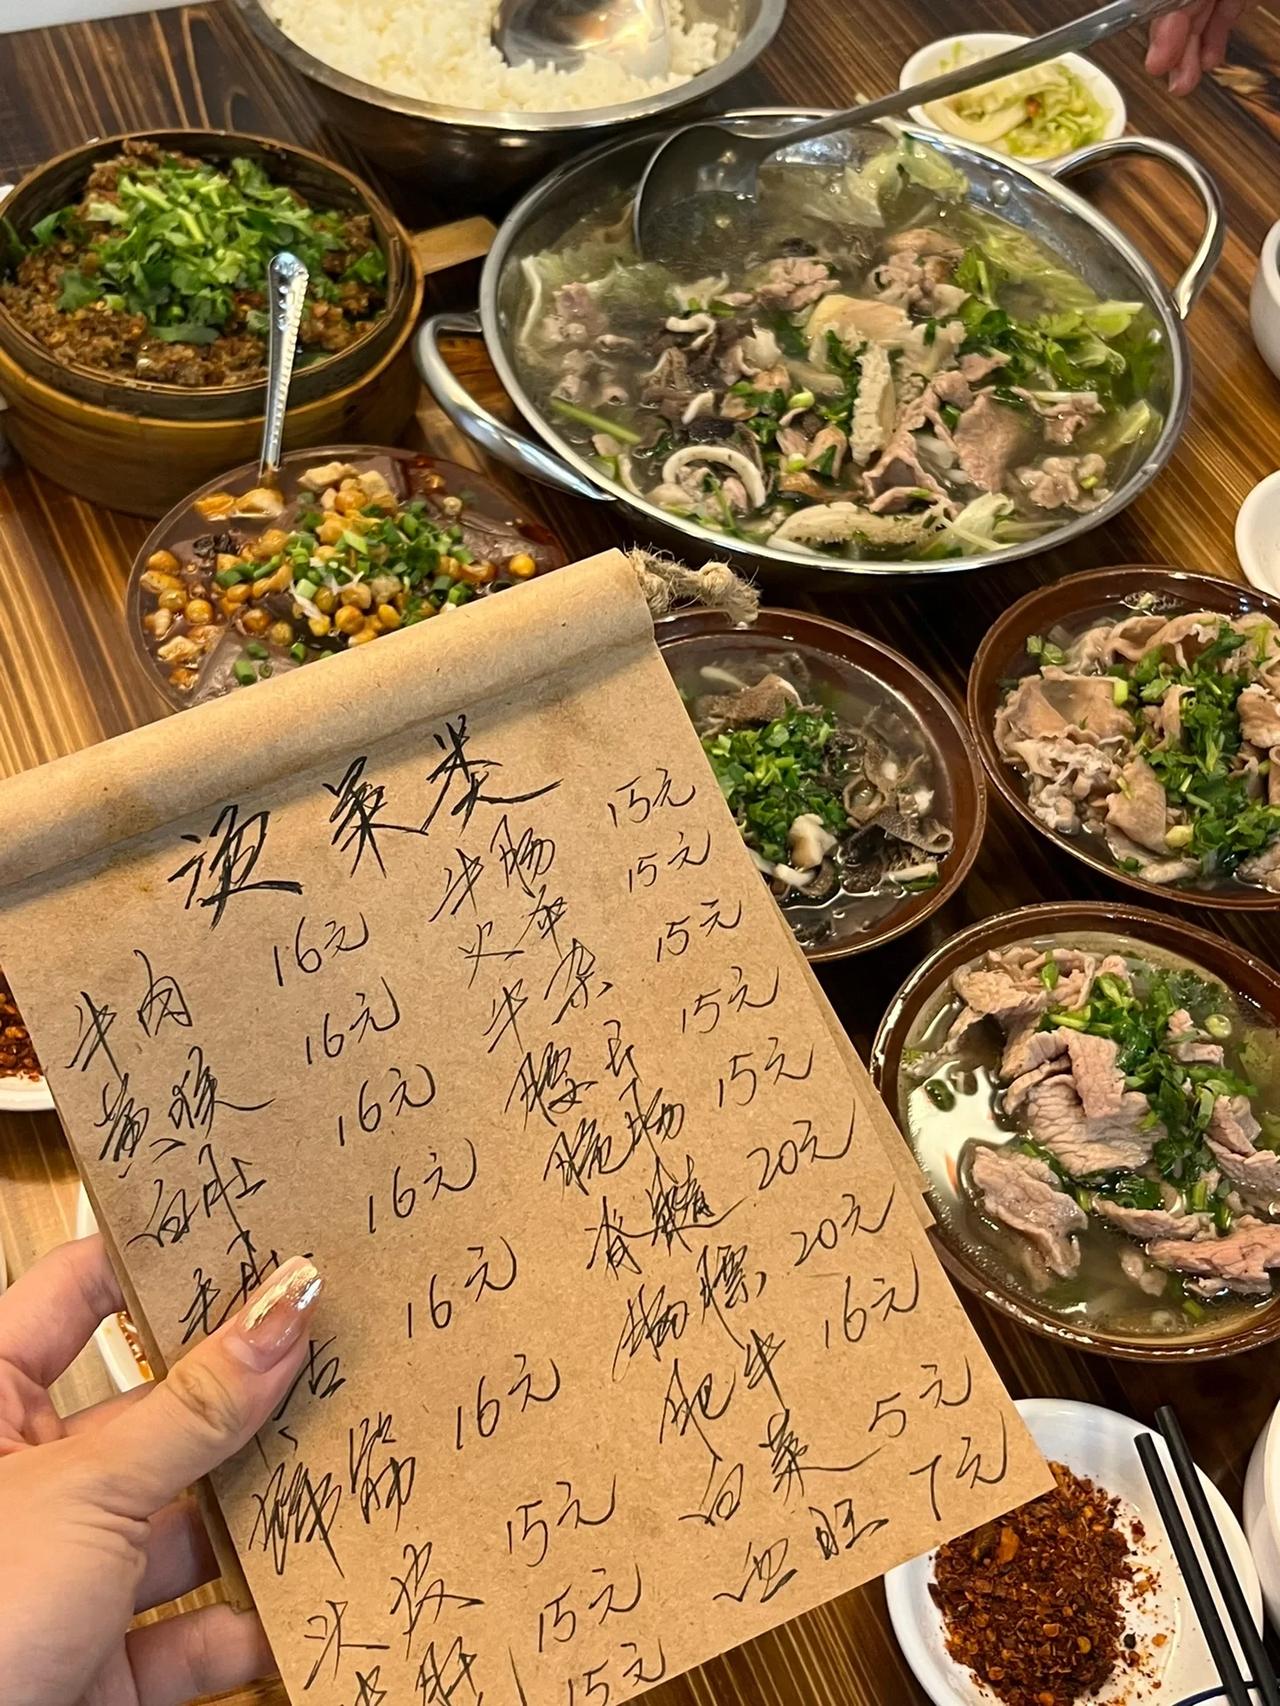 烫菜类
牛肉 16元
黄喉 16元
白肚 16元
毛肚 16元
舌 16元
蹄筋 16元
头皮 15元
15元
15元
牛肠 15元
火伞 15元
牛杂 15元
腰子 15元
脆肠 15元
脊髓 20元
20元
肥牛 16元
白菜 5元
血旺 7元